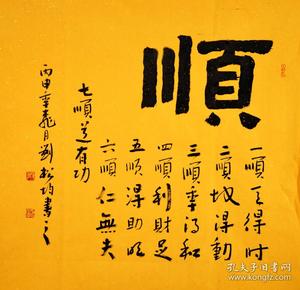 順
一順天得时
二順地得勤
三順季得和
四順利財足
五順得助成
六順仁無失
七順道有功
丙申年荔月劉松均書之
孔夫子旧书网